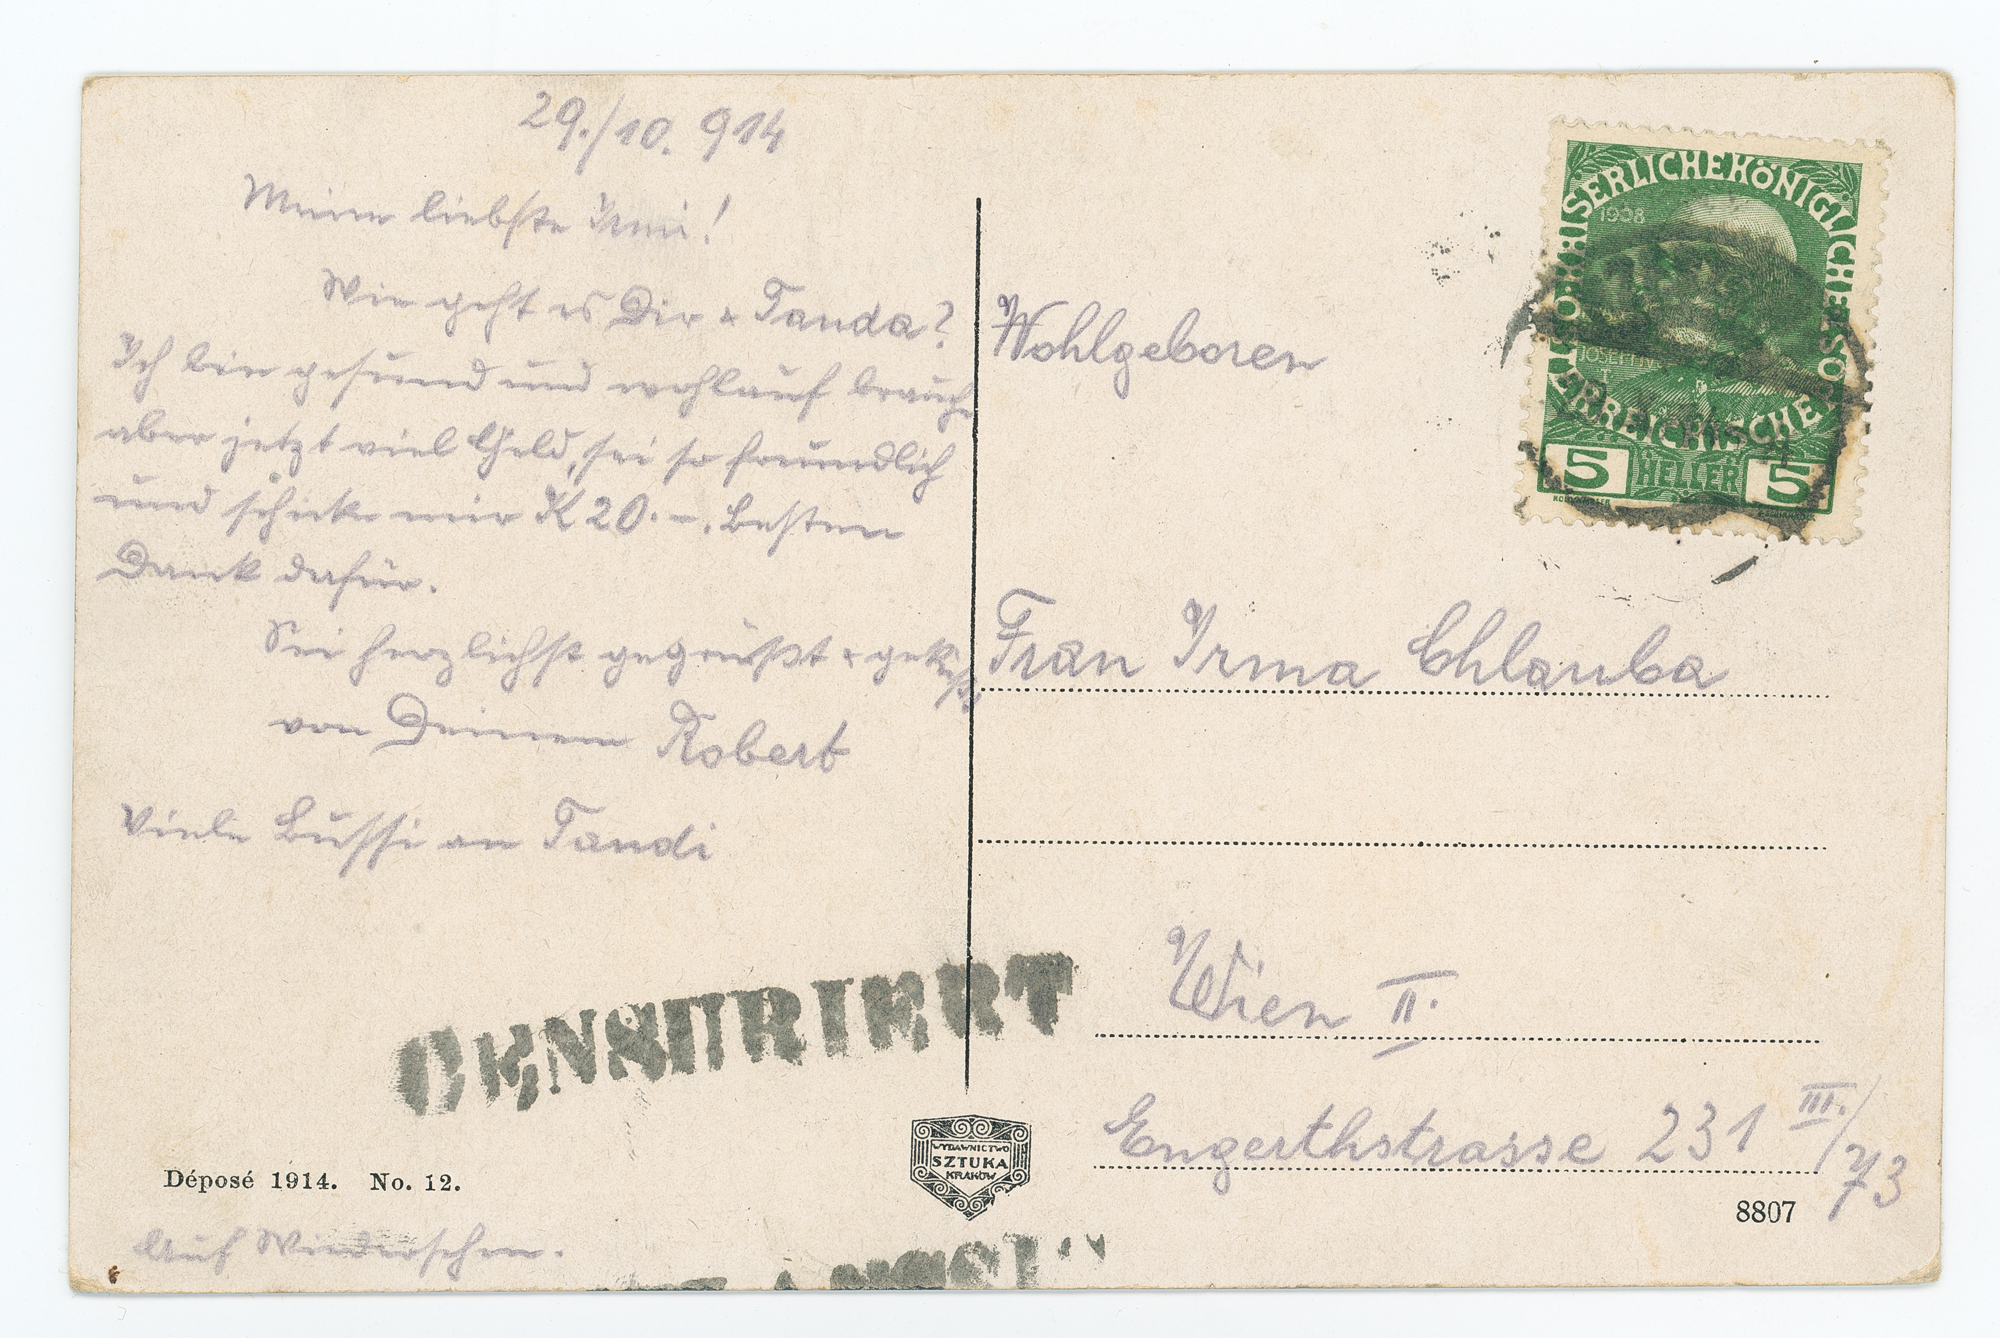 29./10. 914
Meine liebste Irmi!
Wie geht es Dir & Tanda?
Ich bin gesund und wohlauf brauche
aber jetzt viel Geld, sei so freundlich
und schicke mir K 20.-. Besten
Dank dafür.
Sei herzlichst gegrüßt & geküßt
von Deinem Robert
Viele Bussi an Tandi
CENSURIERT
Déposé 1914. No. 12.
Auf Wiedersehen.
WYDAWNICTWO
SZTUKA
KRAKÓW
KAISERLICHE KÖNIGLICHE ÖSTERREICHISCHE POST
1908
5 HELLER 5
Wohlgeboren
Frau Irma Chlauba
Wien II.
Engerthstrasse 231 III./73
8807